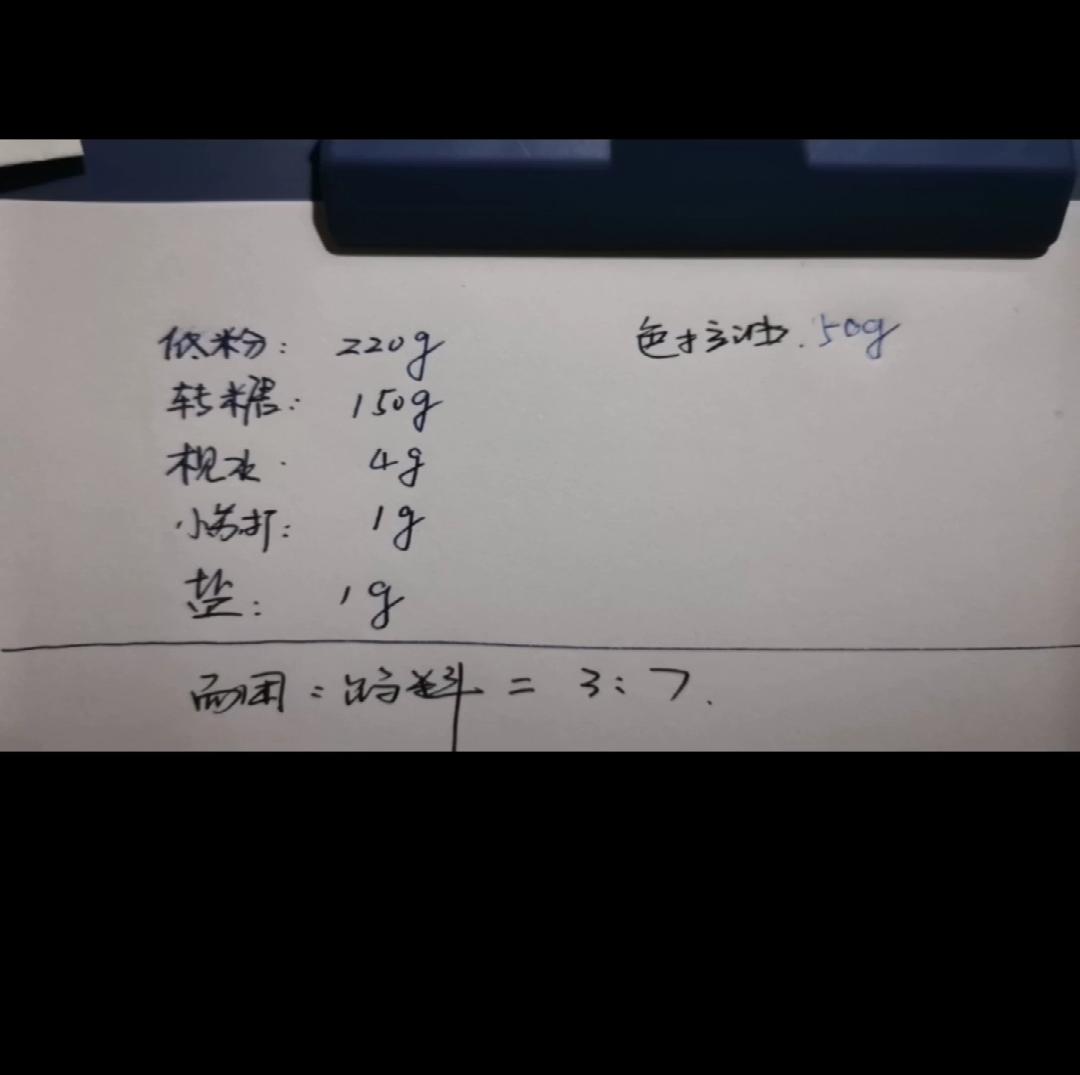 低粉: 220g
转糖: 150g
枧水. 4g
小苏打: 1g
盐: 1g
色拉油. 50g
面团: 馅料 = 3:7.